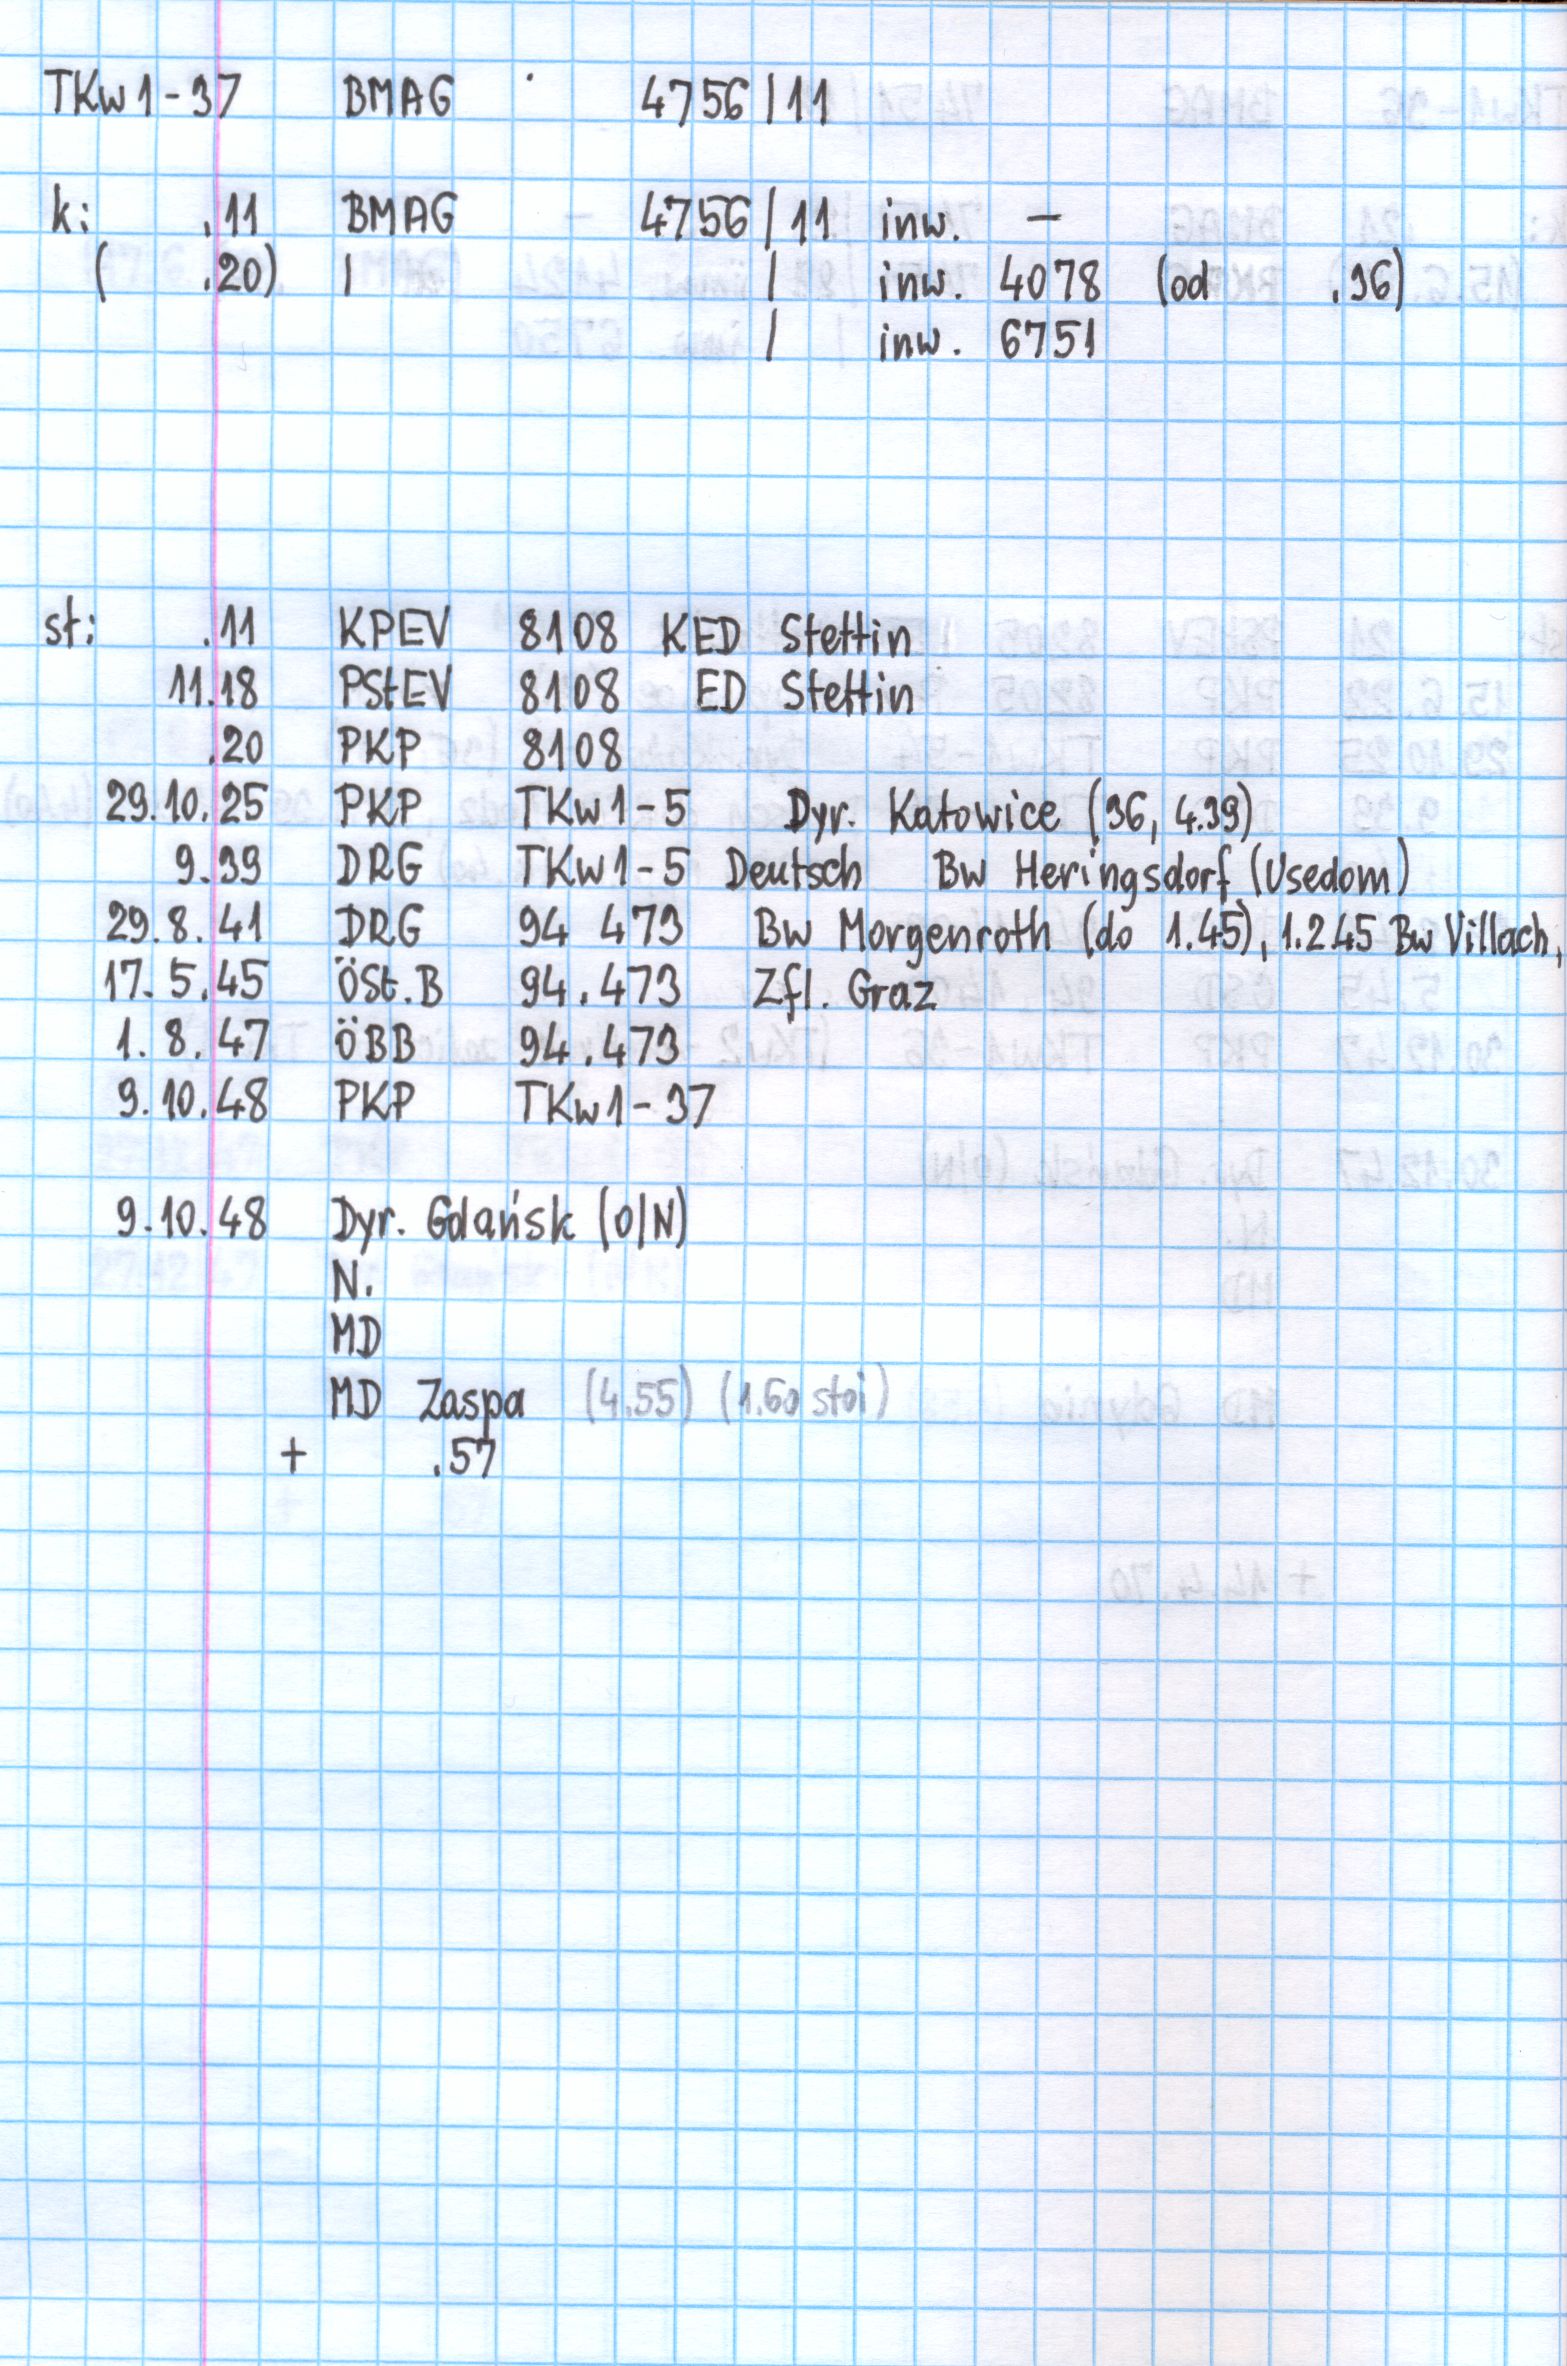 TKw1-37 BMAG 4756/11
k: .11 BMAG - 4756/11 inw. -
( .20) | / inw. 4078 (od .36)
/ inw. 6751
st: .11 KPEV 8108 KED Stettin
11.18 PStEV 8108 ED Stettin
.20 PKP 8108
29.10.25 PKP TKw1-5 Dyr. Katowice (36, 4.39)
9.39 DRG TKw1-5 Deutsch Bw Heringsdorf (Usedom)
29.8.41 DRG 94 473 Bw Morgenroth (do 1.45), 1.2.45 Bw Villach,
17.5.45 ÖSt.B 94.473 Zfl. Graz
1.8.47 ÖBB 94.473
9.10.48 PKP TKw1-37
9.10.48 Dyr. Gdańsk (O/N)
N.
MD
MD Zaspa (4.55) (1.60 stoi)
+ .57